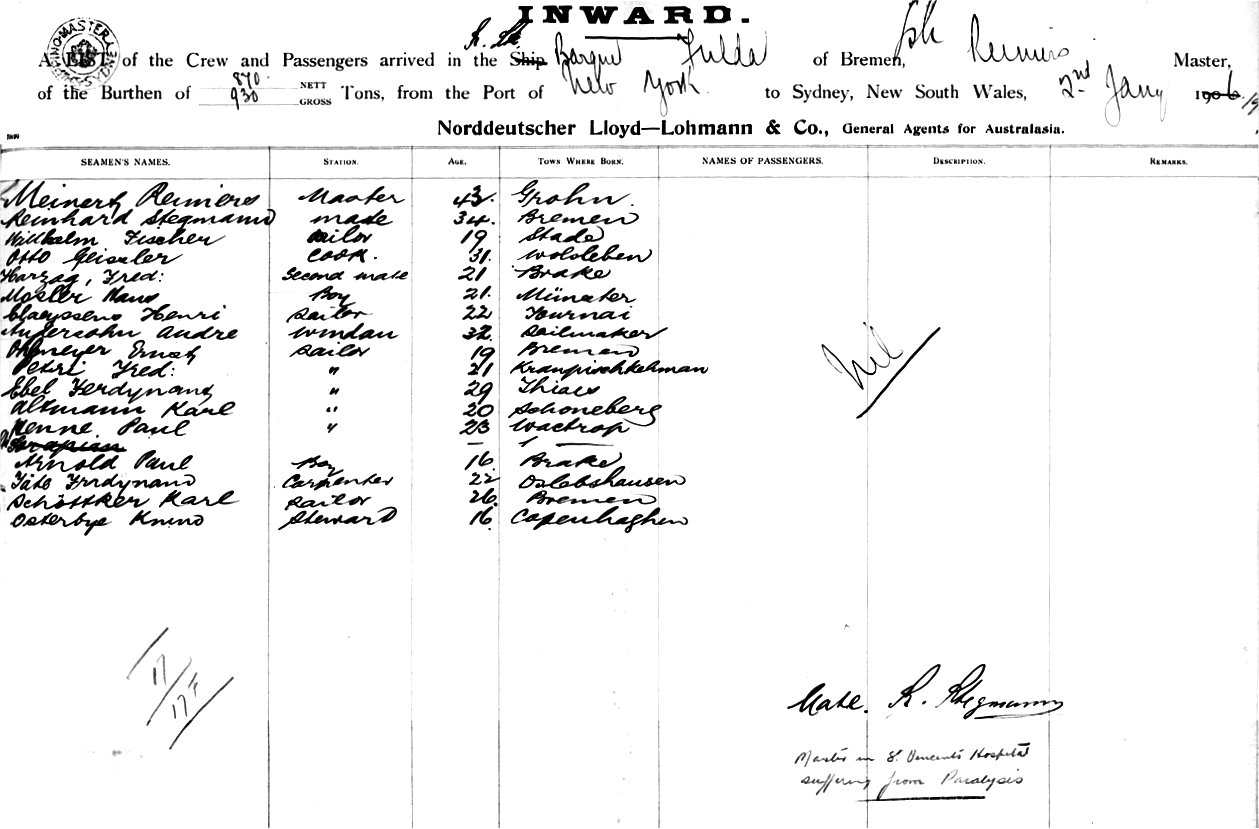 INWARD.
A LIST of the Crew and Passengers arrived in the Ship Barque Fulda of Bremen, Reiners Master,
of the Burthen of 870 930 NETT GROSS Tons, from the Port of New York to Sydney, New South Wales, 2nd Jany 1906
Norddeutscher Lloyd—Lohmann & Co., General Agents for Australasia.
SEAMEN'S NAMES. STATION. AGE. TOWN WHERE BORN. NAMES OF PASSENGERS. DESCRIPTION. REMARKS.
Meinert Reiners Master 43. Grohn.
Reinhard Stegmann mate 34. Bremen
Willhelm Fischer sailor 19 Stade
Otto Geissler Cook. 31. Wolsleben
Harzag, Fred: Second mate 21 Brake
Mosler Hans Boy 21. Münster
Claeyssens Henri sailor 22 Tournai
Andersohn Andre Windau 32. Sailmaker
Ohlmeyer Ernst sailor 19 Bremen
Petri Fred: " 21
Ebel Ferdynand " 29 Thiaes
Altmann Karl " 20 Schoneberg
Henne Paul " 23 Wactrop
—
Arnold Paul Boy 16. Brake
Täte Ferdynand Carpenter 22 Oslebshausen
Schöttker Karl sailor 26. Bremen
Osterbye Knund Steward 16. Copenhaghen
Nil
17
17
Mate. R. Stegmann
Master in St. Vincent's Hospital
suffering from Paralysis